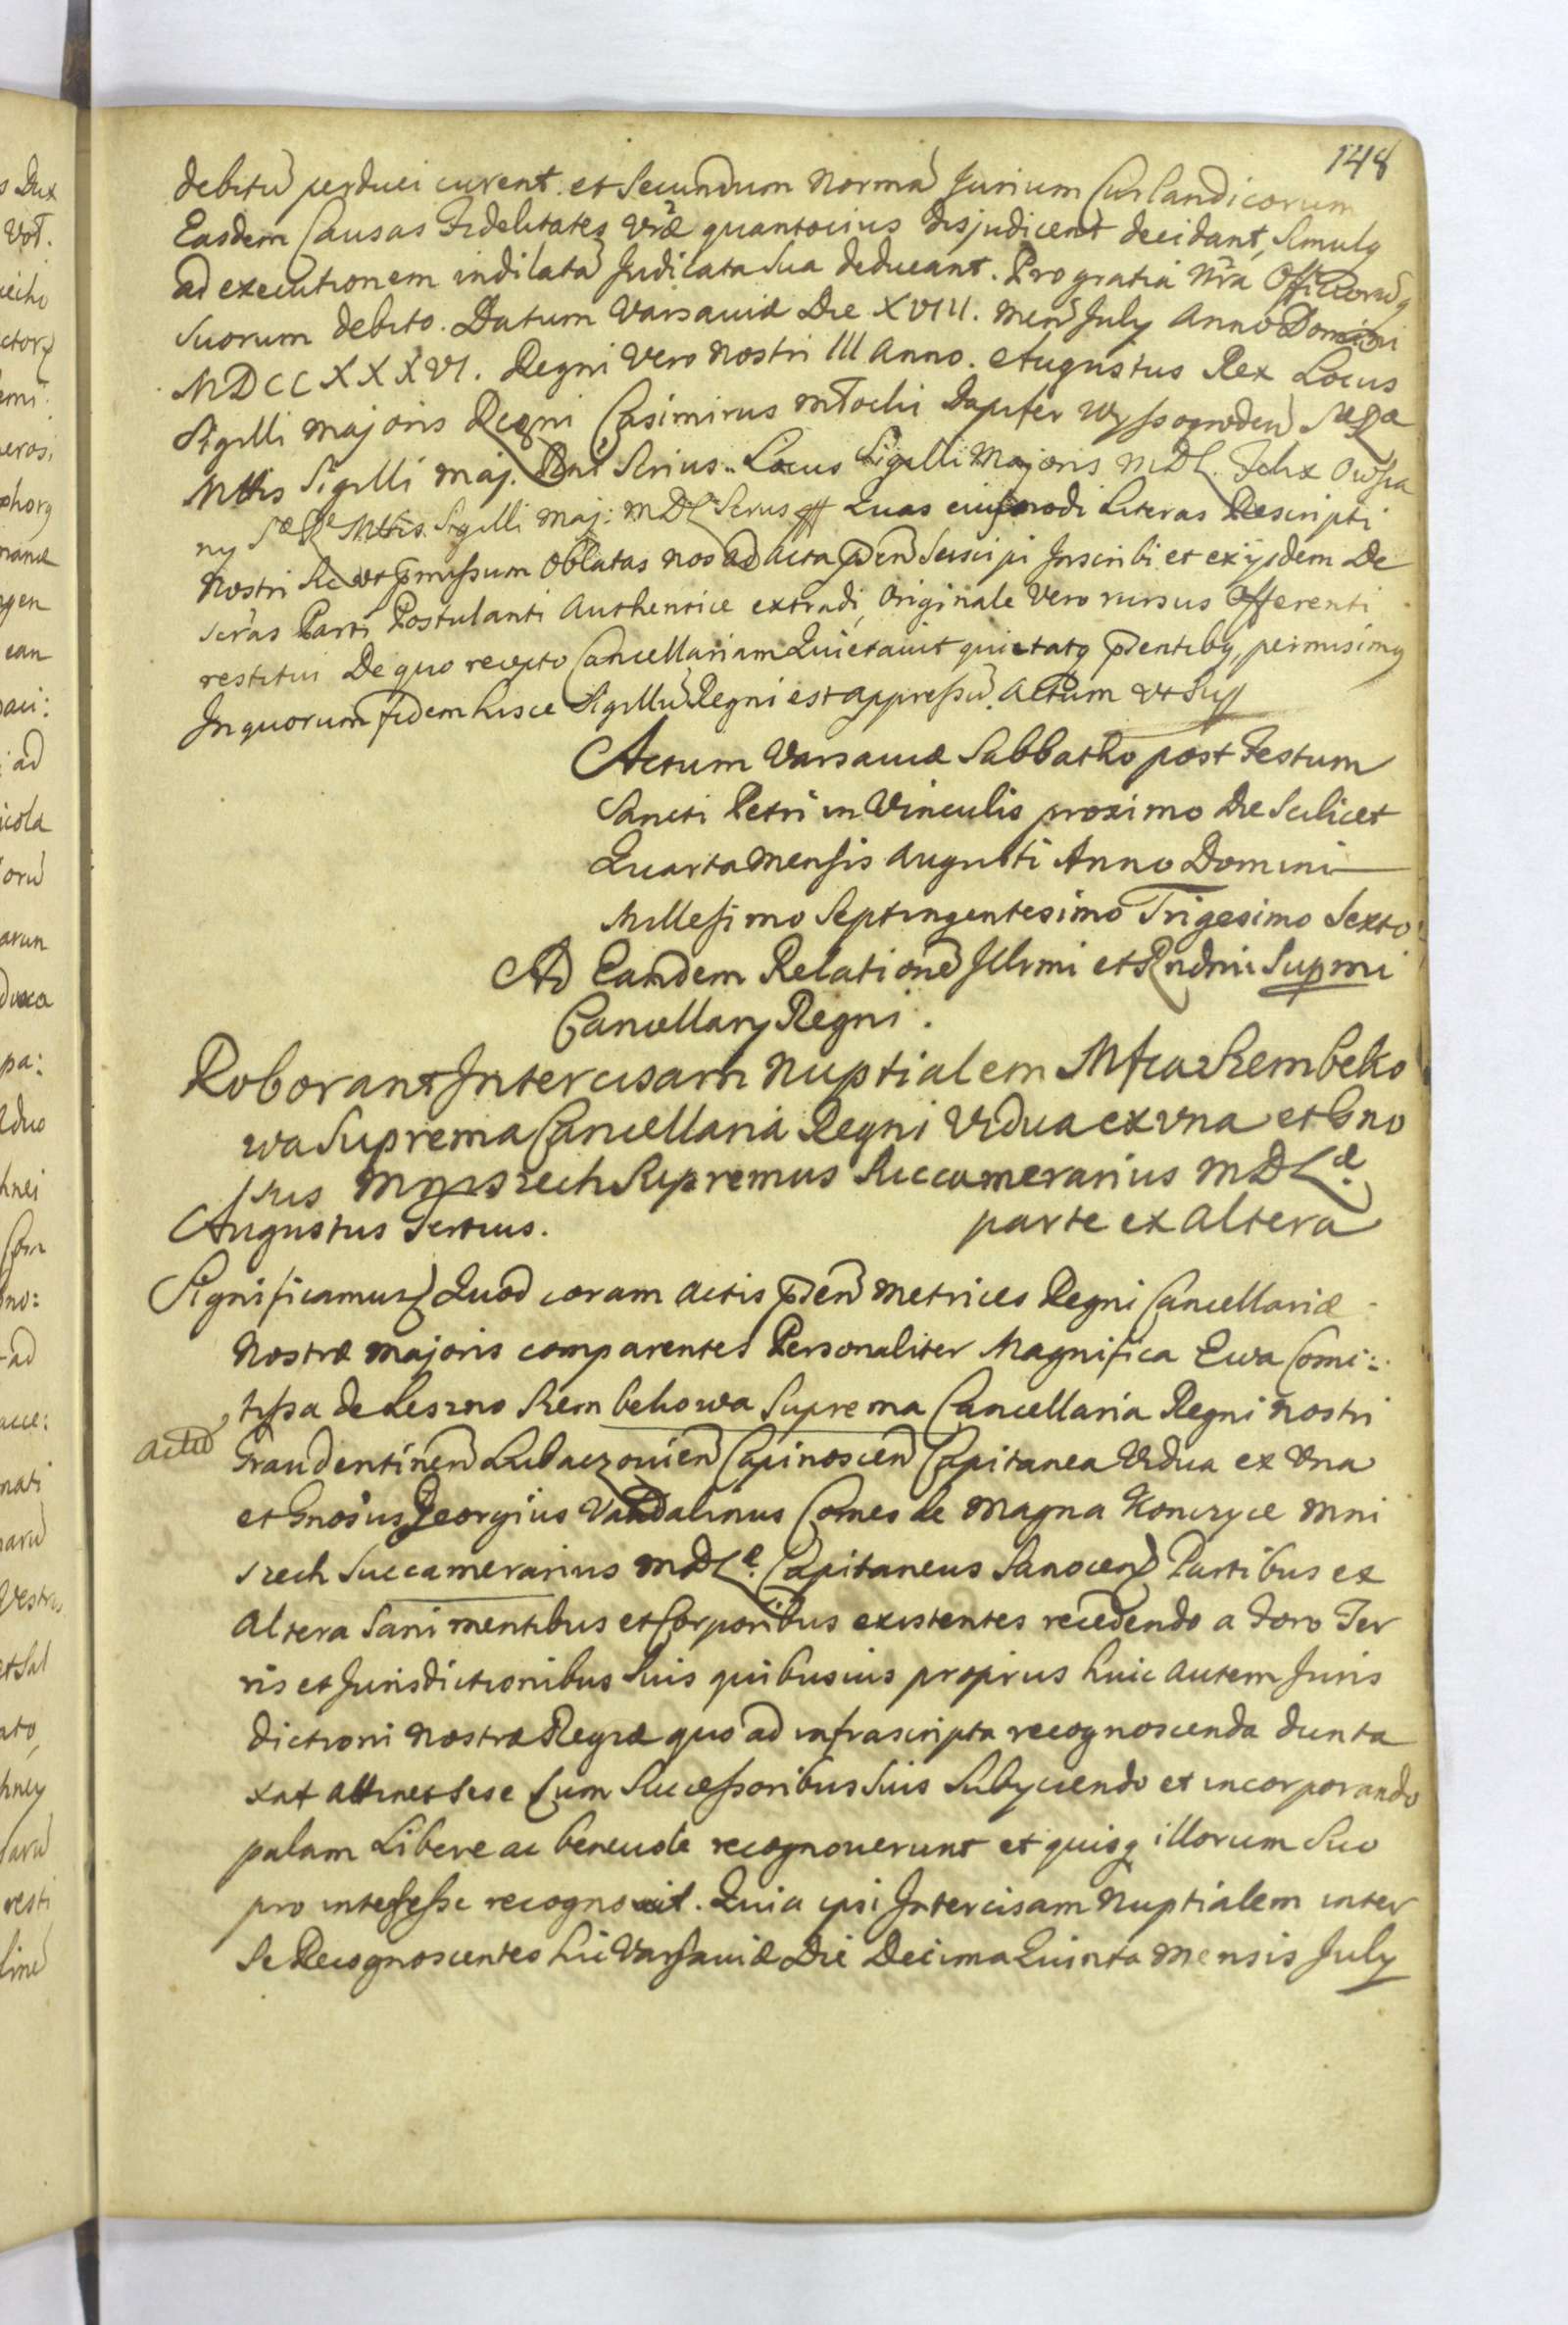 148
debitũ perduci curent et Secundum Normã Jurium Curlandicorum
Easdem Causas Fidelitates Vrã quantocius disjudicent decidant, Simulq
ad executionem indilatã Judicata Sua deducant. Pro gratia Nrã Officiorũq
Suorum debito. Datum Varsaviæ Die XVIII. Mens July Anno Domini
MDCCXXXVI. Regni Vero Nostri III Anno. Augustus Rex Locus
Sigilli majoris Regni Casimirus Młocki Dapifer Wyssogroden S R
Mttis Sigilli maj. Rni Srius. Locus Sigilli Majoris MDL. Felix Owsia
ny S R Mttis Sigilli Maj: MDL Srius Quas eiusmodi Literas Rescripti
Nostri ut pmissum Oblatas nos ad Acta pñ Suscipi Inscribi et ex ijsdem De
scras Parti Postulanti Authentice extradi, Originale Vero rursus Offerenti
restitui De quo recepto Cancellariam Quietavit quietatq pñtibq, permisimq
In quorum fidem hisce Sigillũ Regni est appressũ. Actum ut Sup
Actum Varsaviæ Sabbatho post Festum
Sancti Petri in Vinculis proximo Die Scilicet
Quarta Mensis Augusti Anno Domini
Millesimo Septingentesimo Trigesimo Sexto
Ad Eandem Relationẽ Illrmi et Rndmi Supmi
Cancellarij Regni.
Roborant Intercisam Nuptialem Mfca Szembeko
wa Suprema Cancellaria Regni Vidua ex una et Gno
sus Mniszech Supremus Succamerarius MDL
parte ex altera
Augustus Tertius.
Significamus Quod coram Actis pñ Metrices Regni Cancellariæ
Nostræ majoris comparentes Personaliter Magnifica Ewa Comi:
tissa de Leszno Szembekowa Suprema Cancellaria Regni Nostri
Graudentinen Lubaczovien Capinoscen Capitanea Vidua ex Una
et Gnosus Georgius Vandalinus Comes de Magna Konczyce Mni
szech Succamerarius MDL Capitaneus Sanocen Partibus ex
Altera Sani mentibus et Corporibus existentes recedendo a Foro Ter
ris et Jurisdictionibus Suis quibusuis proprius huic autem Juris
dictioni Nostræ Regiæ quo ad infrascripta recognoscenda dunta
xat attinet Sese Cum Successoribus Suis Subyciendo et incorporando
palam Libere ac benevole recognouerunt et quisq illorum Suo
pro interesse recognovit. Quia ipsi Intercisam Nuptialem inter
Se Recognoscentes hic Varsaviæ Die Decima Quinta Mensis July